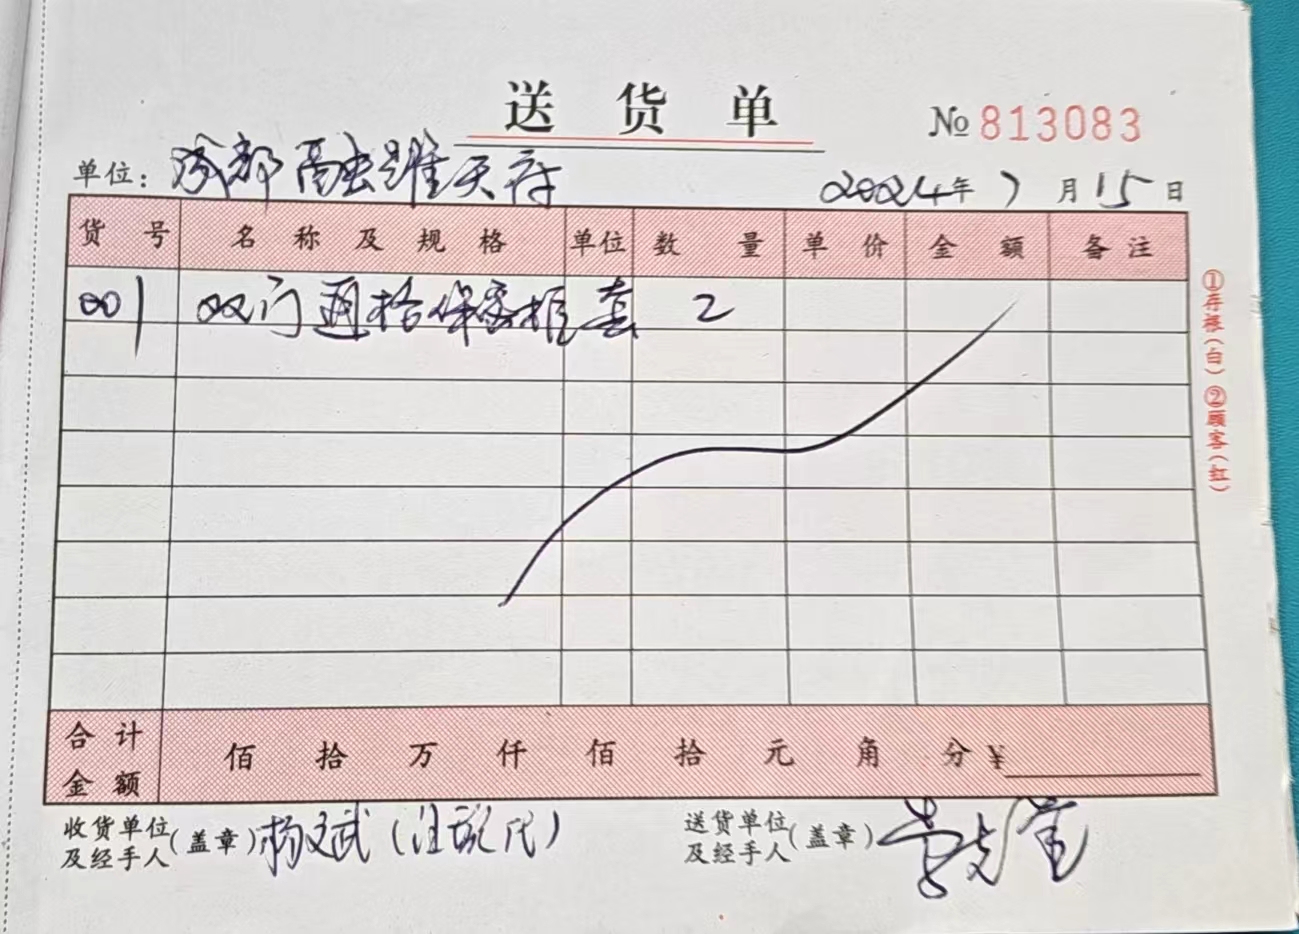 送货单
№ 813083
单位：成都融跃天府 2024年7月15日
货号 名称及规格 单位 数量 单价 金额 备注
001 双门通格保密柜 套 2
合计金额 佰拾万仟佰拾元角分¥
收货单位及经手人(盖章) 杨文武
送货单位及经手人(盖章)
①存根(白)②顾客(红)